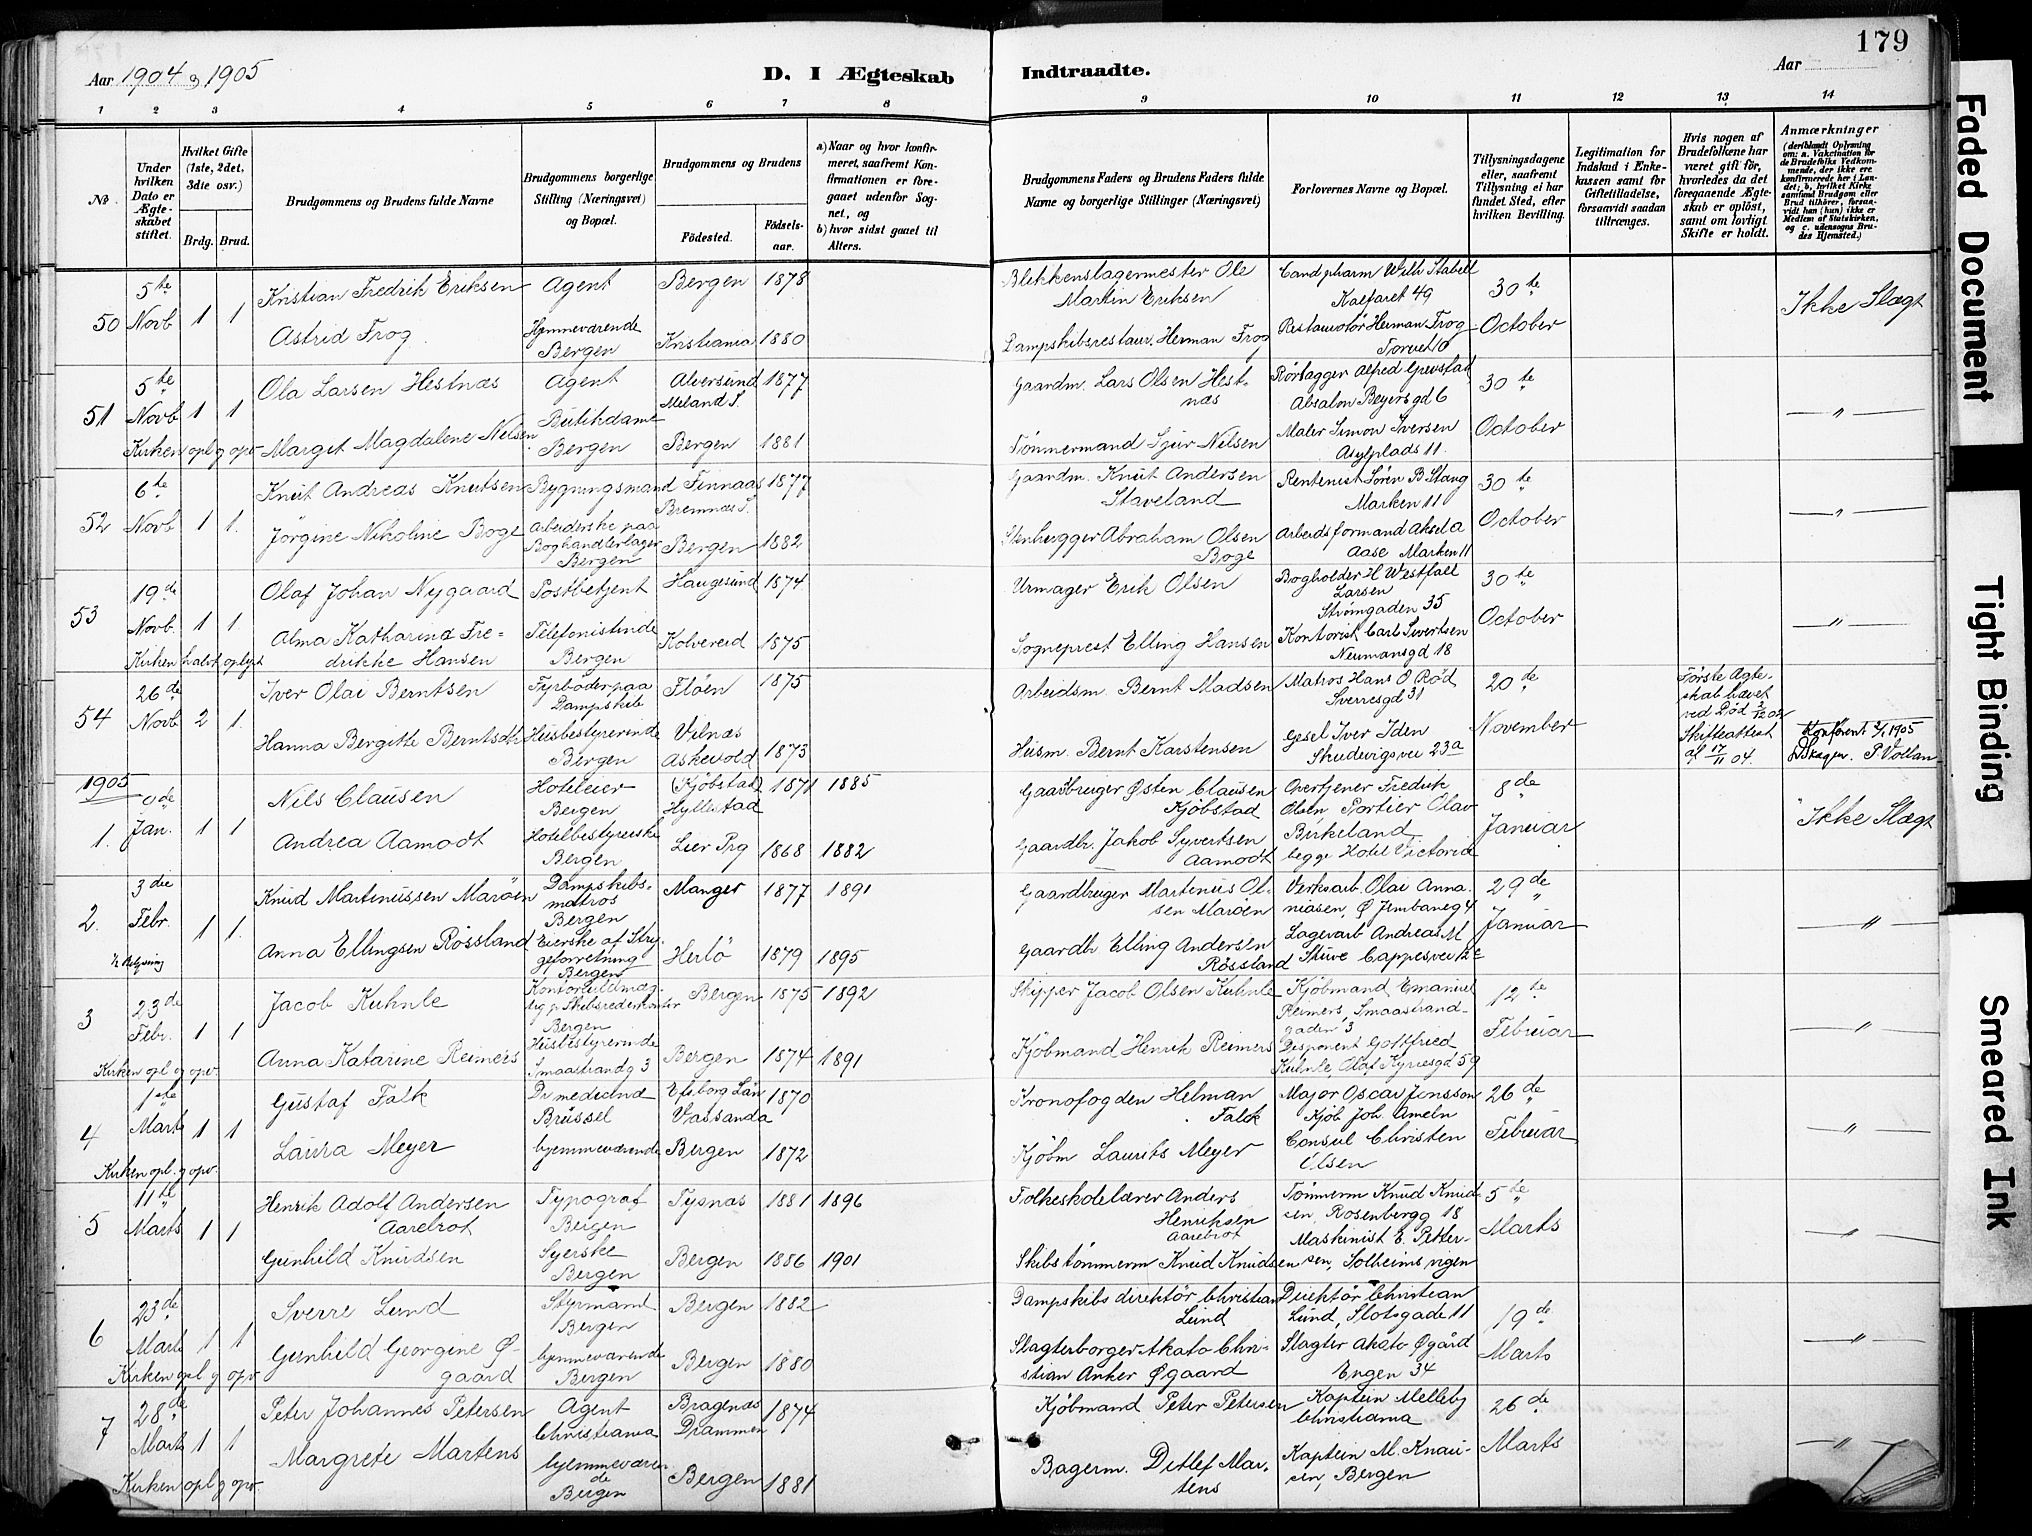 179
Aar 1904 og 1905
D. I Ægteskab Indtraadte.
Aar
1 2 3 4 5 6 7 8 9 10 11 12 13 14
No.
Under hvilken Dato er Ægteskabet stiftet.
Hvilket Gifte (1ste, 2det, 3die osv.)
Brdg. Brud.
Brudgommens og Brudens fulde Navne
Brudgommens borgerlige Stilling (Næringsvei) og Bopæl.
Brudgommens og Brudens
Fødested. Fødselsaar.
a) Naar og hvor konfirmeret, saafremt Konfirmationen er foregaaet udenfor Sognet, og
b) hvor sidst gaaet til Alters.
Brudgommens Faders og Brudens Faders fulde Navne og borgerlige Stillinger (Næringsvei)
Forlovernes Navne og Bopæl.
Tillysningsdagene eller, saafremt Tillysning ei har fundet Sted, efter hvilken Bevilling.
Legitimation for Indskud i Enkekassen samt for Giftetilladelse, forsaavidt saadan tiltrænges.
Hvis nogen af Brudefolkene har været gift før, hvorledes da det foregaaende Ægteskab er opløst, samt om lovligt Skifte er holdt.
Anmærkninger (deriblandt Oplysning om: a. Vakcination for de Brudefolks Vedkommende, der ikke ere konfirmerede her i Landet; b, hvilket Kirkesamfund Brudgom eller Brud tilhører, forsaavidt han (hun) ikke er Medlem af Statskirken, og c. udensogns Brudes Hjemsted.)
50 5te Novb 1 1
Kristian Fredrik Eriksen Agent Bergen 1878
Blikkenslagermester Ole Martin Eriksen
Cand pharm Wilh Stabell Kalfaret 49
30te October
Ikke Slægt
Astrid Frog Hjemmeværende Bergen Kristiania 1880
Dampskibsrestaur. Herman Frog
Restauratør Herman Frog Torvet 10
51 5te Novb 1 1
Kirken opl og opv
Ola Larsen Hestnæs Agent Alversund Meland S. 1877
Gaardm. Lars Olsen Hestnæs
Rørlægger Alfred Grevstad Absalon Beyersgd 6
30te October
— " —
Margit Magdalene Nelsen Butikdame Bergen Bergen 1881
Tømmermand Sjur Nelsen
Maler Simon Iversen Asylplads 11.
52 6te Novb 1 1.
Knut Andreas Knutsen Bygningsmand Finnaas Bremnæs S. 1877
Gaardm. Knut Andersen Staveland
Rentenist Søren B Stang Marken 11
30te October
— " —
Jørgine Nikoline Boge Arbeiderske paa Boghandlerlager Bergen Bergen 1882
Stenhugger Abraham Olsen Boge
Arbeidsformand Aksel A Aase Marken 11
53 19de Novb. 1 1.
Kirken halvt oplyst
Olaf Johan Nygaard Postbetjent Haugesund 1874
Urmager Erik Olsen
Bogholder H Westfall Larsen Strømgaden 35
30te October
— " —
Alma Katharina Fredrikke Hansen Telefonistinde Bergen Kolvereid 1875
Sogneprest Elling Hansen
Kontorist Carl Sivertsen Neumansgd 18
54 26de Novb 2 1.
Iver Olai Berntsen Fyrbøder paa Dampskib Fløen 1875
Arbeidsm. Bernt Madsen
Matros Hans O Rød Sverresgd 31
20de November
Første Ægteskab hævet ved Død 3/12 02 Skifteattest af 17/11 04.
Konferert 2/1 1905
P Vollan
Hanna Bergitte Berntsdtr Husbestyrerinde Bergen Vilnæs Askevold 1873
Husm. Bernt Karstensen
Gesel Iver Iden Skudevigsvei 23a
1905
1. Jan. 1 1
Nils Clausen Hoteleier Bergen (Kjøbstad) Hyllestad 1871 1885
Gaardbruger Østen Clausen Kjøbstad
Overtjener Fredrik Olsen, Portier Olav Birkeland begge Hotel Victoria
8de Januar
Ikke Slægt
Andrea Aamodt Hotelbestyrerske Bergen Lier Prg 1868 1882
Gaardbr. Jakob Syvertsen Aamodt
2. 3die Febr. 1 1.
Knud Martinussen Marøen Dampskibsmatros Bergen Manger 1877 1891
Gaardbruger Martinus Olsen Marøen
Verksarb. Olai Annaniasen, Ø Jernbaneg 4
29de Januar
— " —
½ Belysning
Anna Ellingsen Røssland Eierske af Strygeforretning Bergen Herlø 1879 1895
Gaardbr Elling Andersen Røssland
Lagerarb Andreas M Stuve Cappesvei 12c
3 23de Febr. 1 1
Kirken opl og opv.
Jacob Kuhnle Bergen Bergen 1875 1892
Skipper Jacob Olsen Kuhnle
Kjøbmand Emanuel Reimers, Smaastrandgaden 3
12te Februar
— " —
Anna Katarine Reimers Husbestyrerinde Smaastrandg 3 Bergen 1874 1891
Kjøbmand Henrik Reimers
Disponent Gottfried Kuhnle, Olaf Kyrresgd 59
4 1ste Marts 1 1
Kirken opl. og opv.
Gustaf Falk Dr medicind Brüssel Elfsborg Län Vassanda 1870
Kronofogden Helman Falck
Major Oscar Jonsson Kjøb Joh. Ameln
26de Februar
— " —
Laura Meyer hjemmeværende Bergen 1872
Kjøbm Laurits Meyer
Consul Christen Olsen
5 11te Marts 1 1
Henrik Adolf Andersen Aarebrot Typograf Bergen Tysnæs 1881 1896
Folkeskolelærer Anders Henriksen Aarebrot
Tømmerm Knud Knudsen, Rosenbergg 18
5te Marts
— " —
Gunhild Knudsen Syerske Bergen Bergen 1886 1901
Skibstømmerm Knud Knudsen
Maskinist E. Pettersen, Solheimsvigen
6 23de Marts 1 1
Kirken opl og opv
Sverre Lund Styrmand Bergen Bergen 1882
Dampskibsdirektør Christian Lund
Direktør Christian Lund, Slotsgade 11
19de Marts
— " —
Gunhild Georgine Øgaard hjemmeværende Bergen Bergen 1880
Slagterborger Akato Christian Anker Øgaard
Slagter Akato Øgård Engen 34
7 28de Marts 1 1
Kirken opl og opv.
Peter Johannes Petersen Agent Christiania Bragenæs Drammen 1874
Kjøbmand Peter Petersen
Kaptein Melleby Christiania
26de Marts
— " —
Margrete Martens hjemmeværende Bergen Bergen 1881
Bagerm. Detlef Martens
Kaptein M. Knausen, Bergen
Faded Document
Tight Binding
Smeared Ink